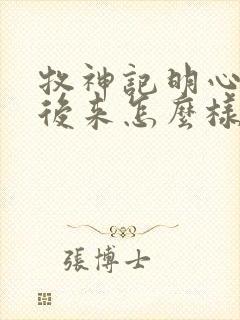 牧神記明心
後来怎麼樣
張博士